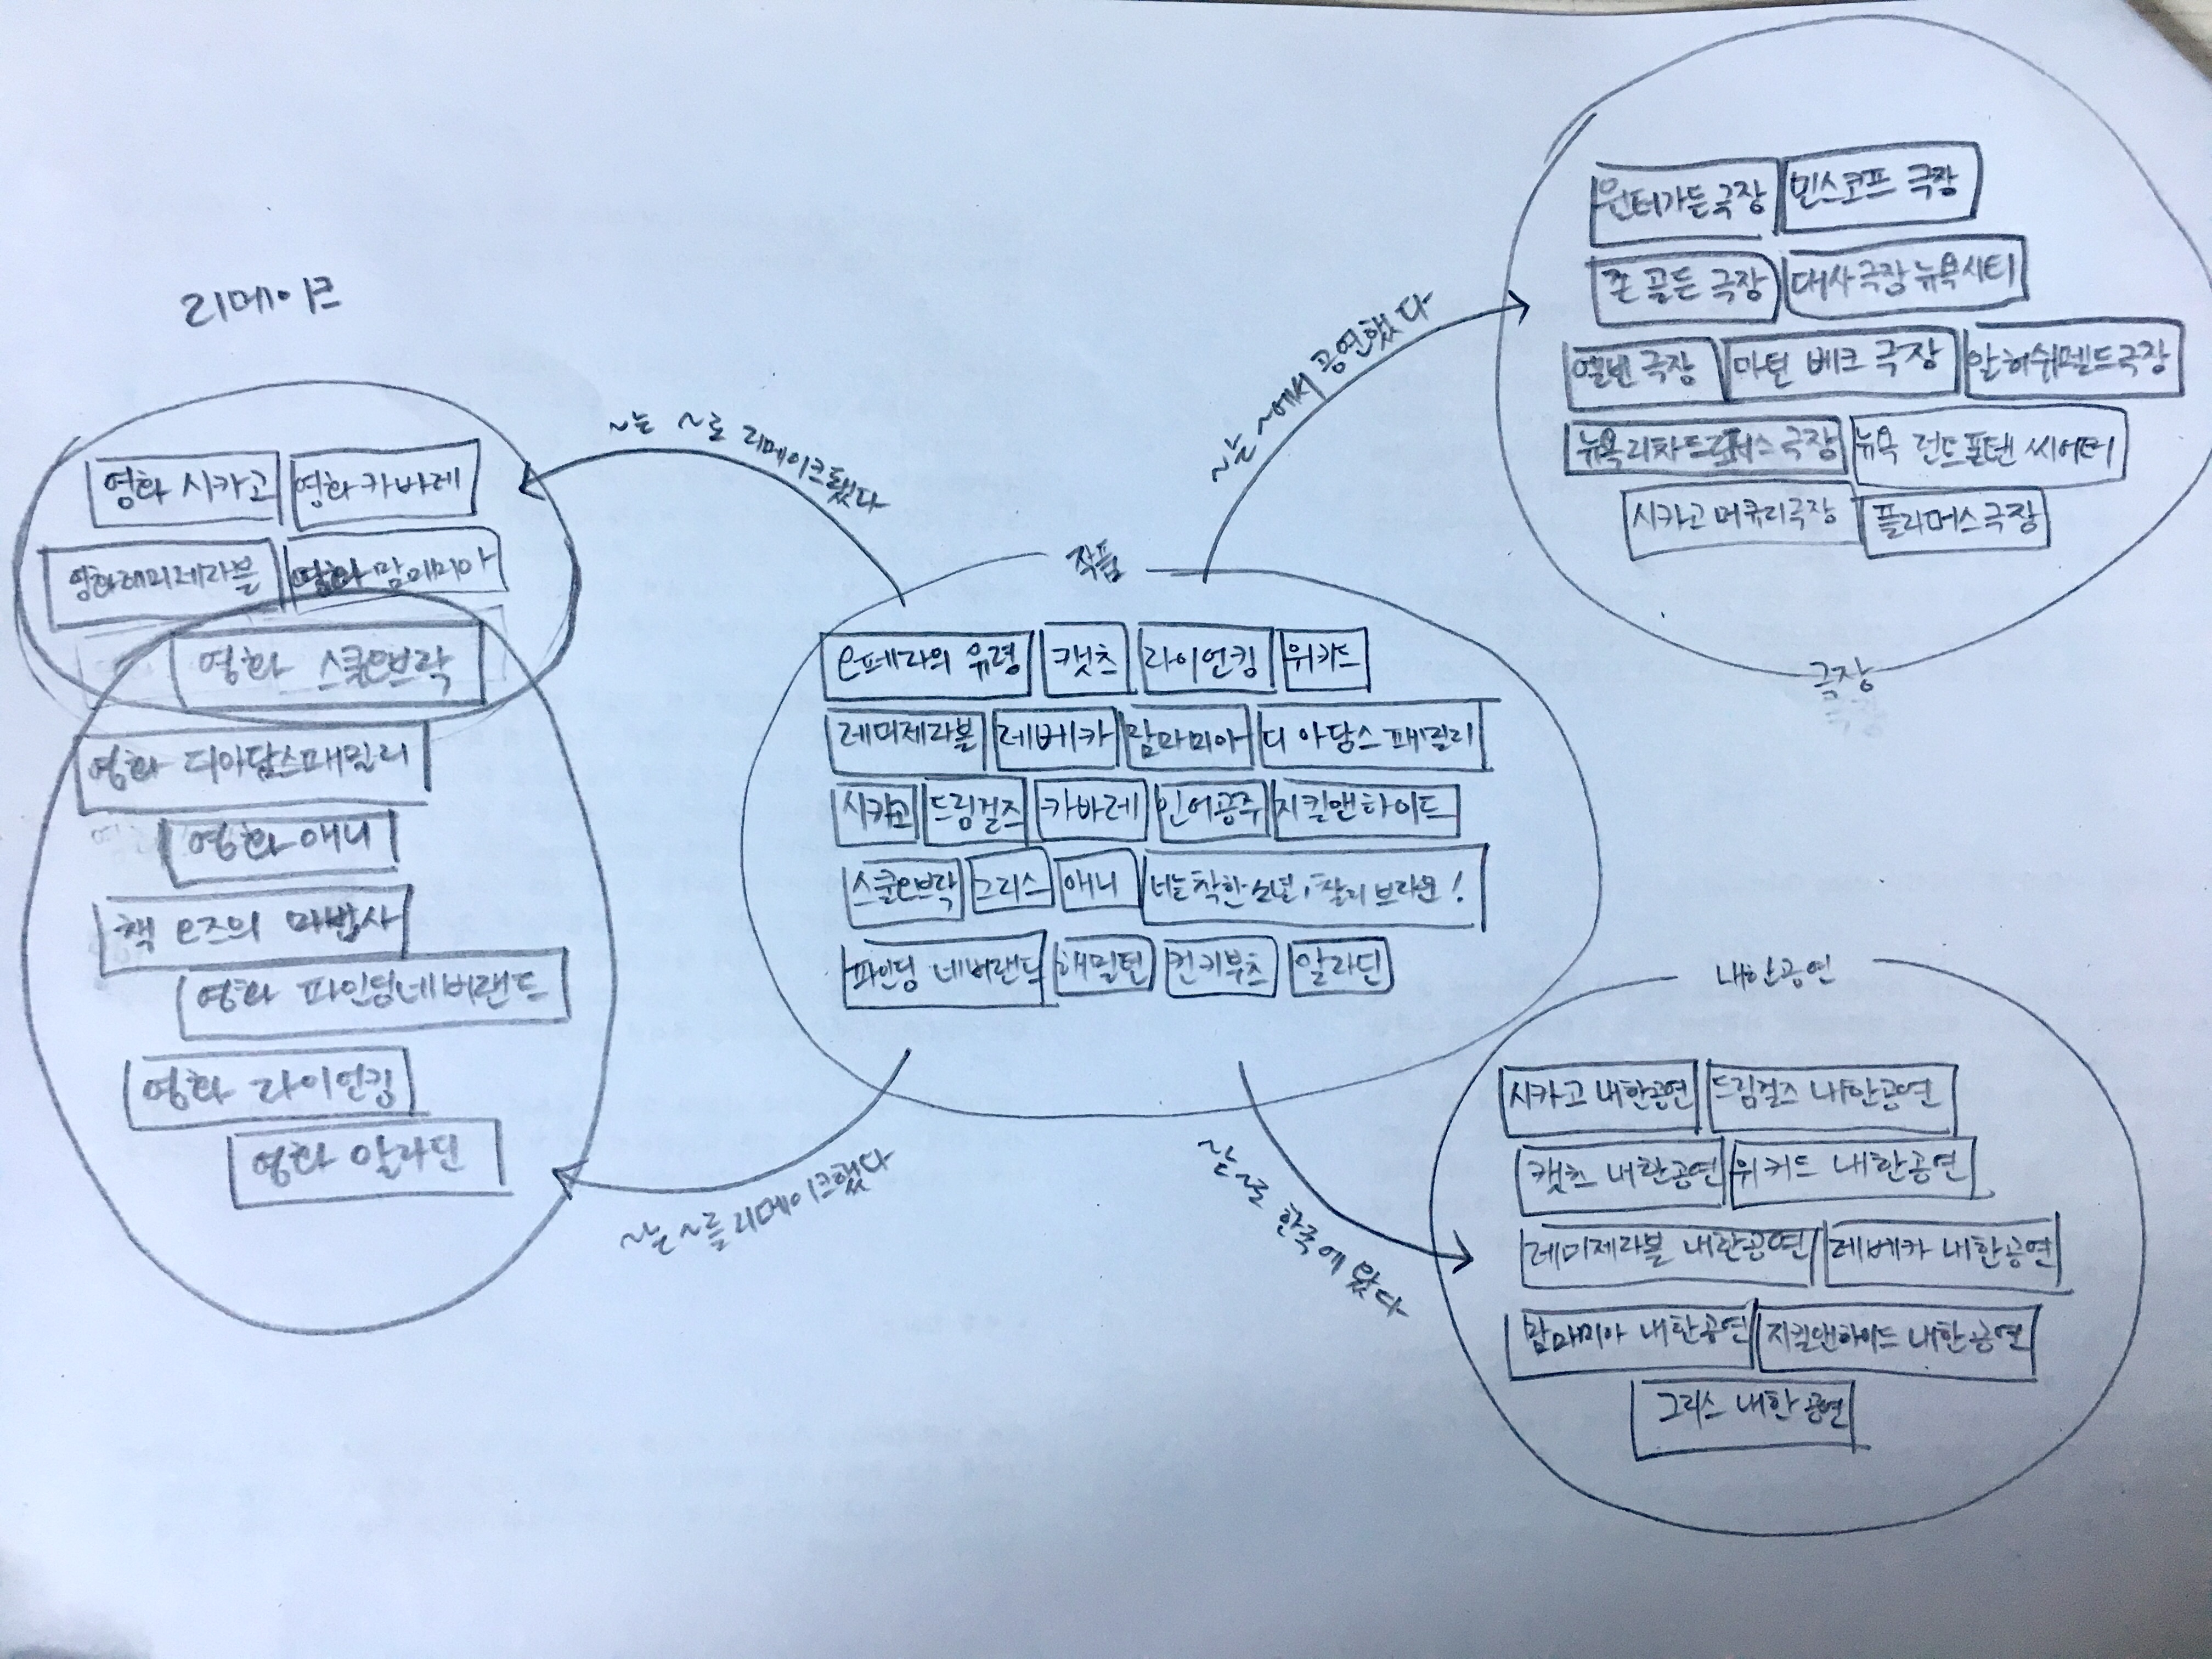 리메이크
영화 시카고 영화 카바레
영화레미제라블 영화 맘마미아
영화 스쿨오브락
영화 디아담스패밀리
영화 애니
책 오즈의 마법사
영화 파인딩네버랜드
영화 라이언킹
영화 알라딘
~는 ~로 리메이크됐다
~는 ~를 리메이크했다
작품
오페라의 유령 캣츠 라이언킹 위키드
레미제라블 레베카 맘마미아 디 아담스 패밀리
시카고 드림걸즈 카바레 인어공주 지킬앤하이드
스쿨오브락 그리스 애니 너는 착한 소년, 찰리 브라운!
파인딩 네버랜드 해밀턴 킨키부츠 알라딘
~는 ~에서 공연했다
윈터가든극장 민스코프 극장
존 골든 극장 대사극장 뉴욕시티
마틴 베크 극장 알허쉬펠드극장
뉴욕리차드 극장 뉴욕 런드폰텐 씨어터
시카고 머큐리극장 플리머스극장
극장
한국에 왔다
내한공연
시카고 내한공연 드림걸즈 내한공연
캣츠 내한공연 위키드 내한공연
레미제라블 내한공연 레베카 내한공연
맘마미아 내한공연 지킬앤하이드 내한공연
그리스 내한공연